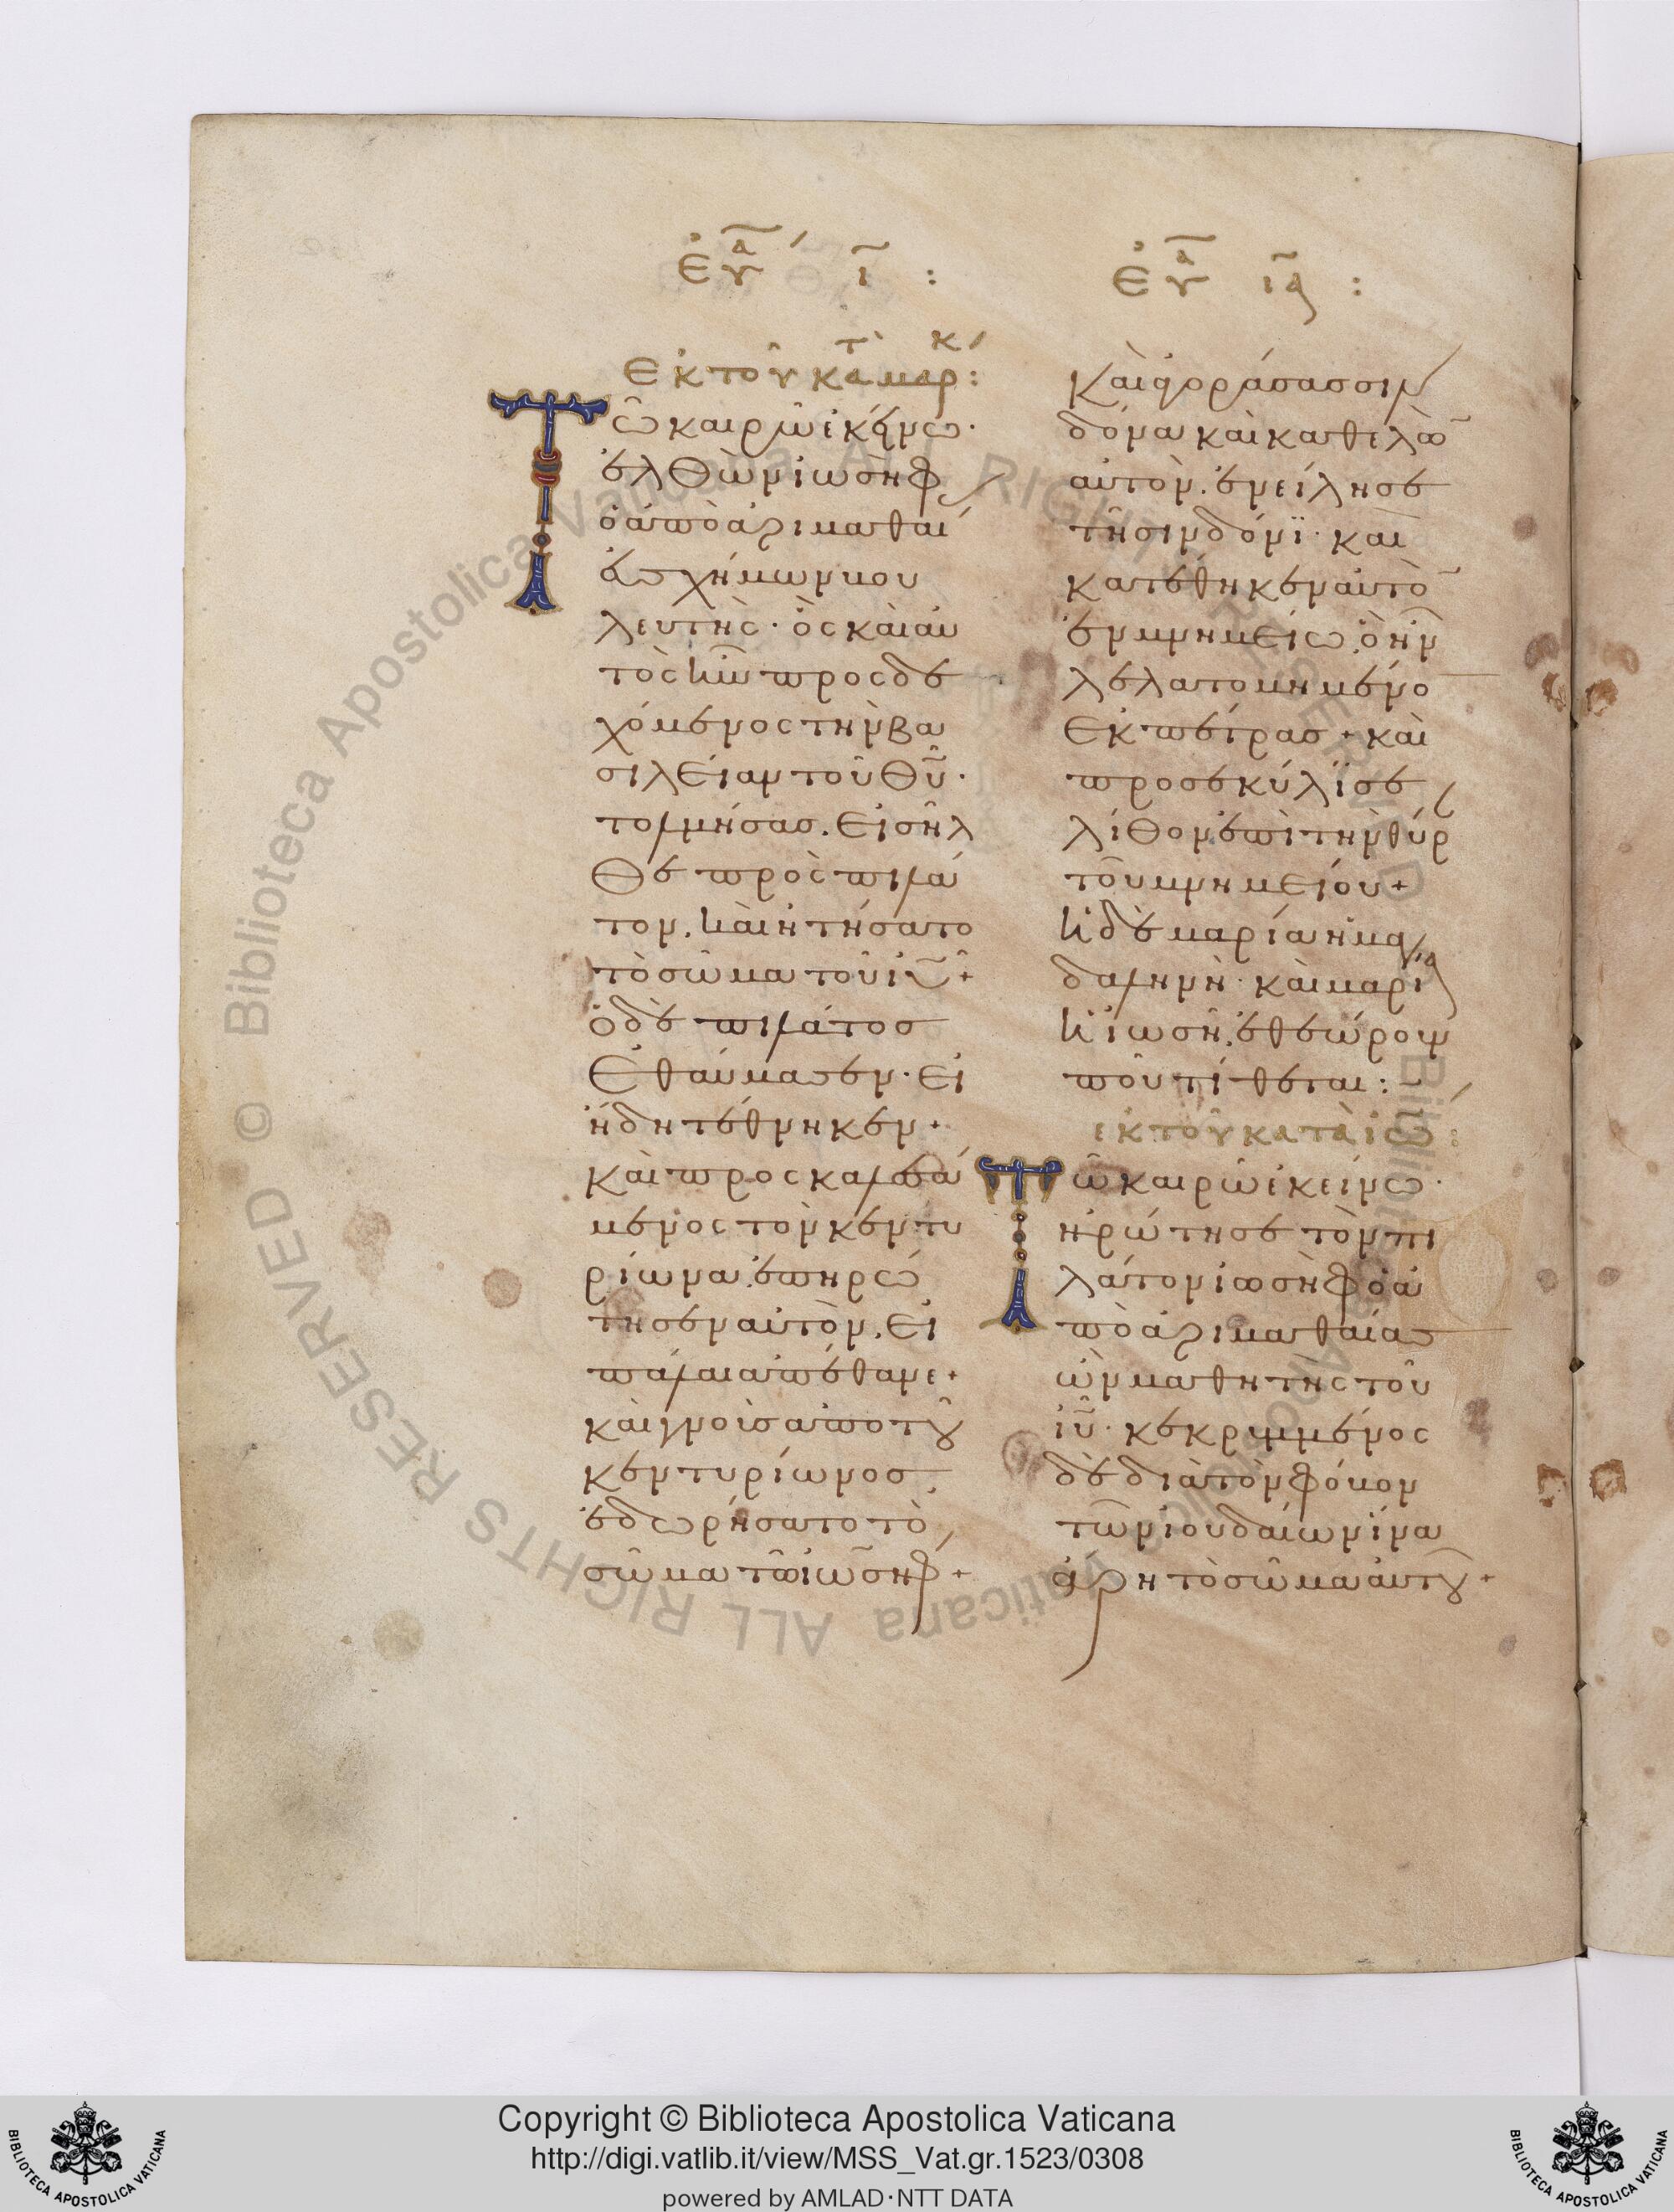 εὐα ι :
ἐκ τοῦ κατ μαρκ :
Τῶ καιρῶ ἐκείνω·
ἐλθὼν ἰωσὴφ
ὁ ἀπὸ ἀριμαθαί
ἀσχήμων κου
λευτὴς· ὃς καὶ αὐ
τὸς ἦν προςδε
χόμενος τὴν βα
σιλείαν τοῦ θῦ·
τολμήσας. εἰσῆλ
θε πρὸς πιλά
τον. καὶ ἠτήσατο
τὸ σῶμα τοῦ ἰῦ +
ὁ δὲ πιλάτος
ἐθαύμασεν· εἰ
ἤδη τέθνηκεν +
καὶ προςκαλεσά
μενος τὸν κεντυ
ρίωνα. ἐπηρώ
τησεν αὐτὸν. εἰ
πάλαι ἀπέθανε +
καὶ γνοὺς ἀπὸ τοῦ
κεντυρίωνος
ἐδωρήσατο τὸ
σῶμα τῶ ἰωσὴφ +
εὐα ια :
καὶ ἀγοράσας σιν
δόνα καὶ καθελὼ
αὐτὸν. ἐνείλησε
τῆ σινδόνϊ· καὶ
κατέθηκεν αὐτὸ
ἐν μνημείω. ὃ ἦν
λελατομημένο
ἐκ πέτρας + καὶ
προσεκύλϊσε
λίθον ἐπὶ τὴν θύρ
τοῦ μνημείου +
ἡ δὲ μαρία ἡ μαγ
δαληνὴ· καὶ μαρία
ἡ ἰωσῆ. ἐθεώρουν
ποῦ τίθεται : ~
ἐκ τοῦ κατὰ ἰω :
Τῶ καιρῶ ἐκείνω·
ἠρώτησε τὸν πι
λάτον ἰωσὴφ ὁ ἀ
πὸ ἀριμαθαίας
ὢν μαθητὴς τοῦ
ἰῦ· κεκρυμμένος
δὲ διὰ τὸν φόβον
τῶν ἰουδαίων ἵνα
ἄρη τὸ σῶμα αὐτοῦ +
Copyright © Biblioteca Apostolica Vaticana
http://digi.vatlib.it/view/MSS_Vat.gr.1523/0308
powered by AMLAD·NTT DATA